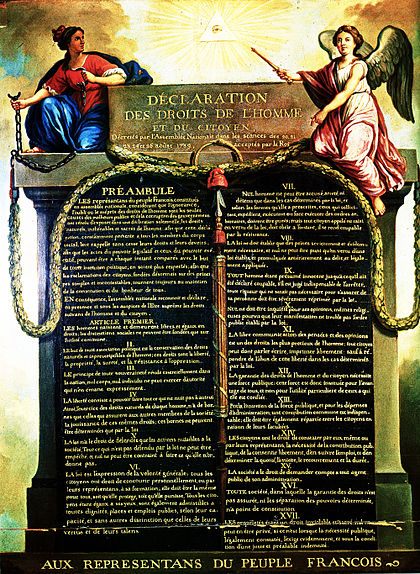 DÉCLARATION
DES DROITS DE L'HOMME
ET DU CITOYEN,
Décrétés par l'Assemblée Nationale dans les séances des 20, 21
23, 24 et 26 août 1789, acceptés par le Roi
PRÉAMBULE
LES représentans du peuple François constitués
en assemblée nationale, considérant que l'ignorance,
l'oubli ou le mépris des droits de l'homme sont les seules
causes des malheurs publics et de la corruption des gouvernemens
ont résolu d'exposer dans une déclaration solemnelle, les droits
naturels, inaliénables et sacrés de l'homme: afin que cette décla-
ration, constamment présente à tous les membres du corps
social, leur rappelle sans cesse leurs droits et leurs devoirs,
afin que les actes du pouvoir législatif et ceux du pouvoir exé-
cutif, pouvant être à chaque instant comparés avec le but
de toute institution politique, en soient plus respectés; afin que
les réclamations des citoyens, fondées désormais sur des princi-
pes simples et incontestables, tournent toujours au maintien
de la constitution et du bonheur de tous.
EN conséquence, l'assemblée nationale reconnoit et déclare,
en présence et sous les auspices de l'Etre suprême les droits
suivans de l'homme et du citoyen.
ARTICLE PREMIER.
LES hommes naissent et demeurent libres et égaux en
droits; les distinctions sociales ne peuvent être fondées que sur
l'utilité commune.
II.
LE but de toute association politique est la conservation des droits
naturels et imprescriptibles de l'homme; ces droits sont la liberté,
la propriété, la sureté, et la résistance à l'oppression.
III.
LE principe de toute souveraineté réside essentiellement dans
la nation, nul corps, nul individu ne peut exercer d'autorité
qui n'en émane expressément.
IV.
LA liberté consiste à pouvoir faire tout ce qui ne nuit pas à autrui
Ainsi, l'exercice des droits naturels de chaque homme, n'a de bor-
nes que celles qui assurent aux autres membres de la société
la jouissance de ces mêmes droits; ces bornes ne peuvent
être déterminées que par la loi.
V.
LA loi n'a le droit de défendre que les actions nuisibles à la
société. Tout ce qui n'est pas défendu par la loi ne peut être
empêché, et nul ne peut être contraint à faire ce qu'elle n'or-
donne pas.
VI.
LA loi est l'expression de la volonté générale; tous les
citoyens ont droit de concourir personnellement, ou par
leurs représentans, à sa formation; elle doit être la même
pour tous, soit qu'elle protege, soit qu'elle punisse. Tous les cito-
yens étant égaux à ses yeux, sont également admissibles à
toutes dignités, places et emplois publics, selon leur ca-
pacité, et sans autres distinction que celles de leurs
vertus et de leurs talens.
VII.
NUL homme ne peut être accusé, arrêté, ni
détenu que dans les cas déterminés par la loi, et
selon les formes qu'elle a prescrites, ceux qui sollici-
tent, expédient, exécutent ou font exécuter des ordres ar-
bitraires, doivent être punis; mais tout citoyen appelé ou saisi
en vertu de la loi, doit obéir à l'instant, il se rend coupable
par la résistance.
VIII.
LA loi ne doit établir que des peines strictement et évidem-
ment nécessaires, et nul ne peut être puni qu'en vertu d'une
loi établie, et promulguée antérieurement au délit, et légale-
ment appliquée.
IX.
TOUT homme étant présumé innocent jusqu'à ce qu'il ait
été déclaré coupable, s'il est jugé indispensable de l'arrêter,
toute rigueur qui ne seroit pas nécessaire pour s'assurer de
sa personne doit être sévèrement réprimée par la loi.
X.
NUL ne doit être inquiété pour ses opinions, mêmes religi-
euses pourvu que leur manifestation ne trouble pas l'ordre
public établi par la loi.
XI.
LA libre communication des pensées et des opinions
est un des droits les plus precieux de l'homme; tout citoyen
peut donc parler, écrire, imprimer librement: sauf à ré-
pondre de l'abus de cette liberté dans les cas déterminés
par la loi.
XII.
LA garantie des droits de l'homme et du citoyen nécessite
une force publique; cette force est donc instituée pour l'avan-
tage de tous, et non pour l'utilité particulière de ceux a qui
elle est confiée.
XIII.
POUR l'entretien de la force publique, et pour les dépenses
d'administration, une contribution commune est indispen-
sable; elle doit être également répartie entre les citoyens en
raison de leurs facultées.
XIV.
LES citoyens ont le droit de constater par eux même ou
par leurs représentans, la nécessité de la contribution pub-
lique, de la consentir librement, d'en suivre l'emploi, et d'en
déterminer la quotité, l'assiette, le recouvrement et la durée.
XV.
LA société a le droit de demander compte a tout agent
public de son administration.
XVI.
TOUTE société, dans laquelle la garantie des droits n'est
pas assurée, ni les séparation des pouvoirs déterminée,
n'a point de constitution.
XVII.
LES propriétés étant un droit inviolable et sacré, nul ne
peut en être privé, si ce n'est lorsque la nécessité publique,
légalement constatée, l'exige évidemment, et sous la condi-
tion d'une juste et préalable indemnité.
AUX REPRESENTANS DU PEUPLE FRANCOIS